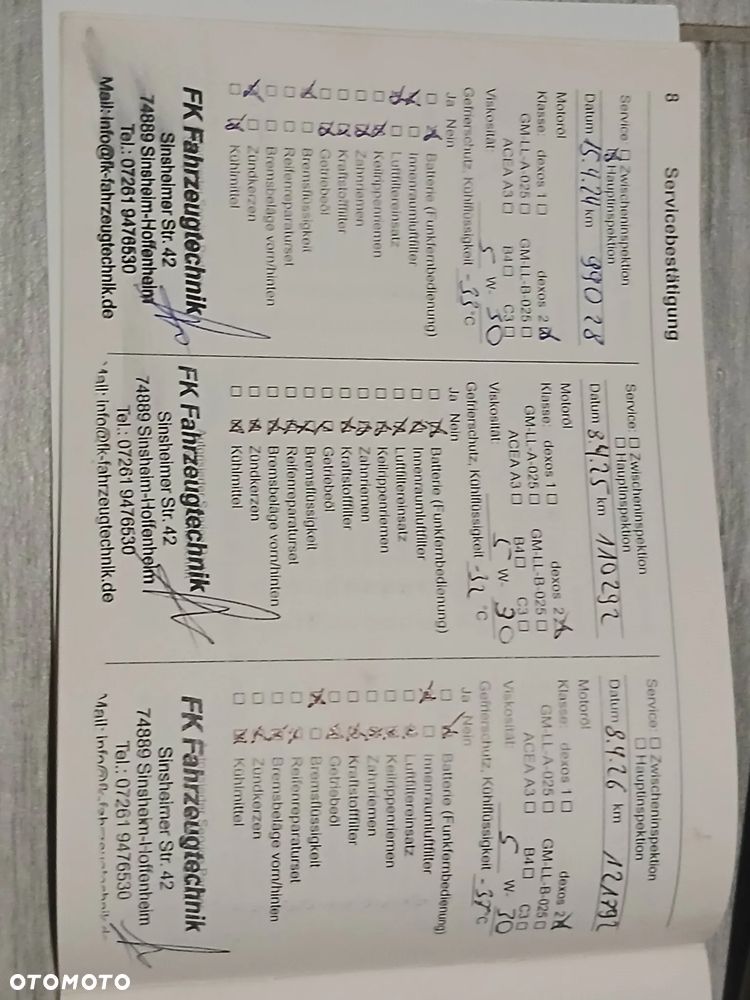 8
Servicebestätigung
Service: ☐ Zwischeninspektion
☒ Hauptinspektion
Datum 15.4.24 km 99028
Motoröl
Klasse: dexos 1 ☐ dexos 2 ☒
GM-LL-A-025 ☐ GM-LL-B-025 ☐
ACEA A3 ☐ B4 ☐ C3 ☐
Viskosität: 5 W- 30
Gefrierschutz, Kühlflüssigkeit -33 °C
Ja Nein
☐ ☒ Batterie (Funkfernbedienung)
☒ ☐ Innenraumluftfilter
☒ ☐ Luftfiltereinsatz
☐ ☒ Keilrippenriemen
☐ ☒ Zahnriemen
☐ ☒ Kraftstofffilter
☐ ☒ Getriebeöl
☒ ☐ Bremsflüssigkeit
☐ ☐ Reifenreparaturset
☐ ☐ Bremsbeläge vorn/hinten
☒ ☐ Zündkerzen
☐ ☒ Kühlmittel
FK Fahrzeugtechnik
Sinsheimer Str. 42
74889 Sinsheim-Hoffenheim
Tel.: 07261 9476530
Mail: info@fk-fahrzeugtechnik.de
Service: ☐ Zwischeninspektion
☐ Hauptinspektion
Datum 8.4.25 km 110292
Motoröl
Klasse: dexos 1 ☐ dexos 2 ☒
GM-LL-A-025 ☐ GM-LL-B-025 ☐
ACEA A3 ☐ B4 ☐ C3 ☐
Viskosität: 5 W- 30
Gefrierschutz, Kühlflüssigkeit -32 °C
Ja Nein
☐ ☒ Batterie (Funkfernbedienung)
☐ ☒ Innenraumluftfilter
☐ ☒ Luftfiltereinsatz
☐ ☒ Keilrippenriemen
☐ ☒ Zahnriemen
☐ ☒ Kraftstofffilter
☐ ☒ Getriebeöl
☐ ☒ Bremsflüssigkeit
☐ ☒ Reifenreparaturset
☐ ☒ Bremsbeläge vorn/hinten
☐ ☒ Zündkerzen
☐ ☒ Kühlmittel
FK Fahrzeugtechnik
Sinsheimer Str. 42
74889 Sinsheim-Hoffenheim
Tel.: 07261 9476530
Mail: info@fk-fahrzeugtechnik.de
Service: ☐ Zwischeninspektion
☐ Hauptinspektion
Datum 8.4.26 km 121792
Motoröl
Klasse: dexos 1 ☐ dexos 2 ☒
GM-LL-A-025 ☐ GM-LL-B-025 ☐
ACEA A3 ☐ B4 ☐ C3 ☐
Viskosität: 5 W- 30
Gefrierschutz, Kühlflüssigkeit -37 °C
Ja Nein
☐ ☒ Batterie (Funkfernbedienung)
☒ ☐ Innenraumluftfilter
☐ ☒ Luftfiltereinsatz
☐ ☒ Keilrippenriemen
☐ ☒ Zahnriemen
☐ ☒ Kraftstofffilter
☐ ☒ Getriebeöl
☒ ☐ Bremsflüssigkeit
☐ ☒ Reifenreparaturset
☐ ☒ Bremsbeläge vorn/hinten
☐ ☒ Zündkerzen
☐ ☒ Kühlmittel
FK Fahrzeugtechnik
Sinsheimer Str. 42
74889 Sinsheim-Hoffenheim
Tel.: 07261 9476530
Mail: info@fk-fahrzeugtechnik.de
OTOMOTO